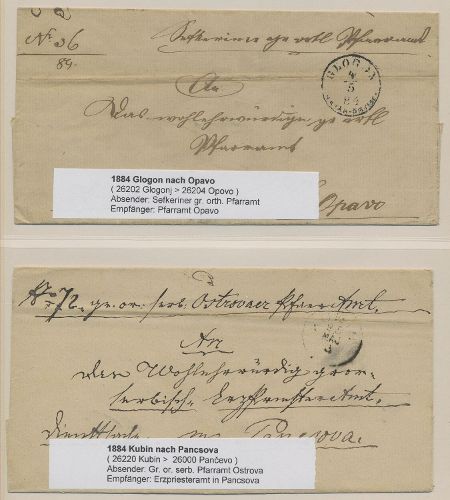 No 36
89.
Sefkeriner gr ortl Pfarramt
GLOGON
5
84
An
Das wohlehrwürdige gr ortl
Pfarramt
Opavo
1884 Glogon nach Opavo
( 26202 Glogonj > 26204 Opovo )
Absender: Sefkeriner gr. orth. Pfarramt
Empfänger: Pfarramt Opavo
No 72. gr. or. serb. Ostrovaer Pfarr Amt.
An
das Wohlehrwürdig gr or
serbisch. Erzpriesteramt.
Dienstsache in Pancsova.
1884 Kubin nach Pancsova
( 26220 Kubin > 26000 Pančevo )
Absender: Gr. or. serb. Pfarramt Ostrova
Empfänger: Erzpriesteramt in Pancsova